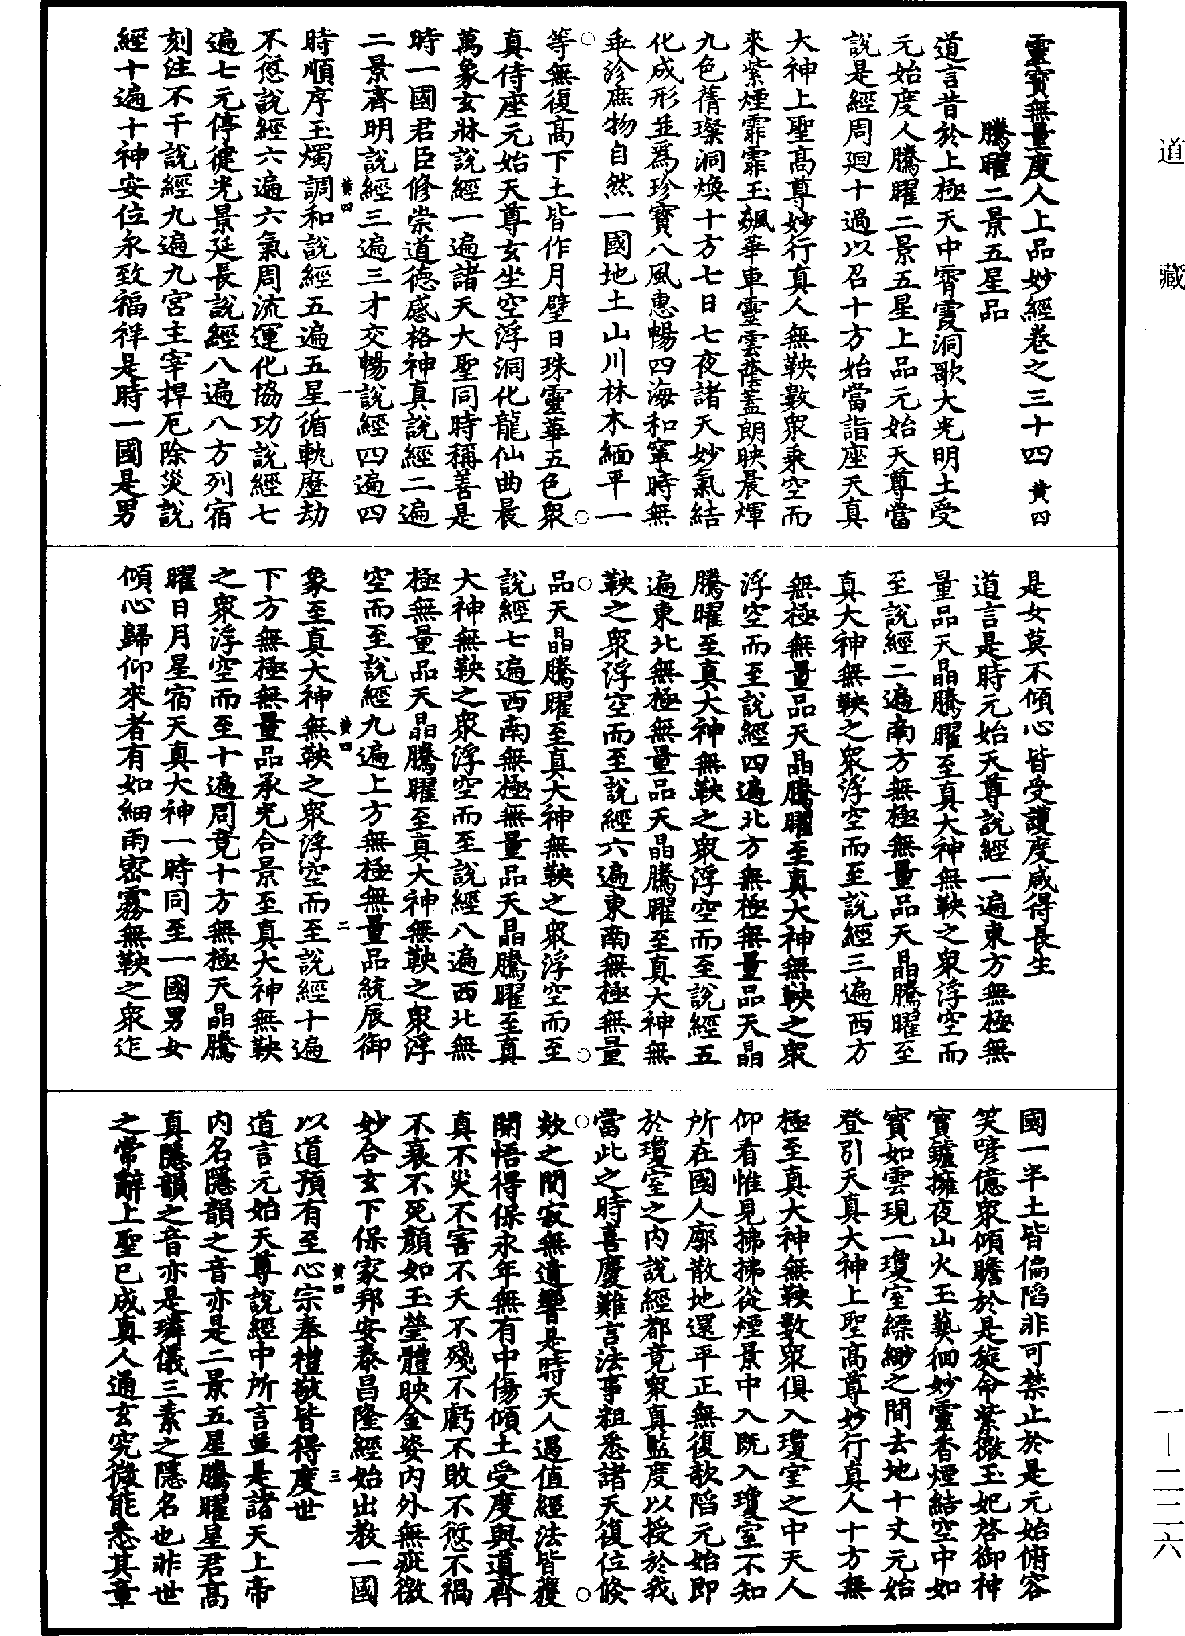 道藏
靈寶無量度人上品妙經卷之三十四 黄四
騰曜二景五星品
道言昔於上極天中霄霞洞歌大光明土受
元始度人騰曜二景五星上品元始天尊當
說是經周迴十過以召十方始當詣座天真
大神上聖高尊妙行真人無鞅數衆乘空而
來紫煙霏霏玉飆華車靈雲蔭蓋朗映晨煇
九色蒨璨洞煥十方七日七夜諸天妙氣結
化成形並爲珍寶八風惠暢四海和寧時無
乖沴庶物自然一國地土山川林木緬平一
等無復高下土皆作月璧日珠靈華五色衆
真侍座元始天尊玄坐空浮洞化龍仙曲晨
萬象玄牀說經一遍諸天大聖同時稱善是
時一國君臣修崇道德感格神真說經二遍
二景齊明說經三遍三才交暢說經四遍四
黄四
一
時順序玉燭調和說經五遍五星循軌歷劫
不愆說經六遍六氣周流運化協功說經七
遍七元停健光景延長說經八遍八方列宿
刻注不干說經九遍九宮主宰捍厄除災說
經十遍十神安位永致福祥是時一國是男
是女莫不傾心皆受護度咸得長生
道言是時元始天尊說經一遍東方無極無
量品天晶騰曜至真大神無鞅之衆浮空而
至說經二遍南方無極無量品天晶騰曜至
真大神無鞅之衆浮空而至說經三遍西方
無極無量品天晶騰曜至真大神無鞅之衆
浮空而至說經四遍北方無極無量品天晶
騰曜至真大神無鞅之衆浮空而至說經五
遍東北無極無量品天晶騰曜至真大神無
鞅之衆浮空而至說經六遍東南無極無量
品天晶騰曜至真大神無鞅之衆浮空而至
說經七遍西南無極無量品天晶騰曜至真
大神無鞅之衆浮空而至說經八遍西北無
極無量品天晶騰曜至真大神無鞅之衆浮
空而至說經九遍上方無極無量品統辰御
黄四
二
象至真大神無鞅之衆浮空而至說經十遍
下方無極無量品承光合景至真大神無鞅
之衆浮空而至十遍周竟十方無極天晶騰
曜日月星宿天真大神一時同至一國男女
傾心歸仰來者有如細雨密霧無鞅之衆迮
國一半土皆偏陷非可禁止於是元始俯容
笑喭億衆傾瞻於是旋命紫微玉妃啓御神
寶鑪擁夜山火玉蓺徊妙靈香煙結空中如
寶如雲現一瓊室縹緲之間去地十丈元始
登引天真大神上聖高尊妙行真人十方無
極至真大神無鞅數衆俱入瓊室之中天人
仰看惟見拂拂從煙景中入既入瓊室不知
所在國人廓散地還平正無復欹陷元始即
於瓊室之内說經都竟衆真監度以授於我
當此之時喜慶難言法事粗悉諸天復位倐
欻之間寂無遺響是時天人遇值經法皆獲
開悟得保永年無有中傷傾土受度與道齊
真不災不害不夭不殘不虧不敗不愆不禍
不衰不死顏如玉瑩體映金姿内外無疵微
妙合玄下保家邦安泰昌隆經始出教一國
黄四
三
以道預有至心宗奉禮敬皆得度世
道言元始天尊說經中所言並是諸天上帝
内名隱韻之音亦是二景五星騰曜星君高
真隱韻之音亦是璘儀三素之隱名也非世
之常辭上聖已成真人通玄究微能悉其章
一—二二六